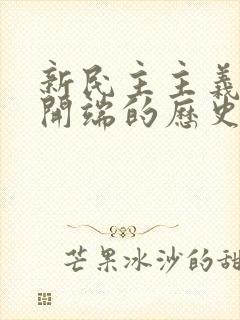 新民主主義
開端的歷史
芒果冰沙的甜